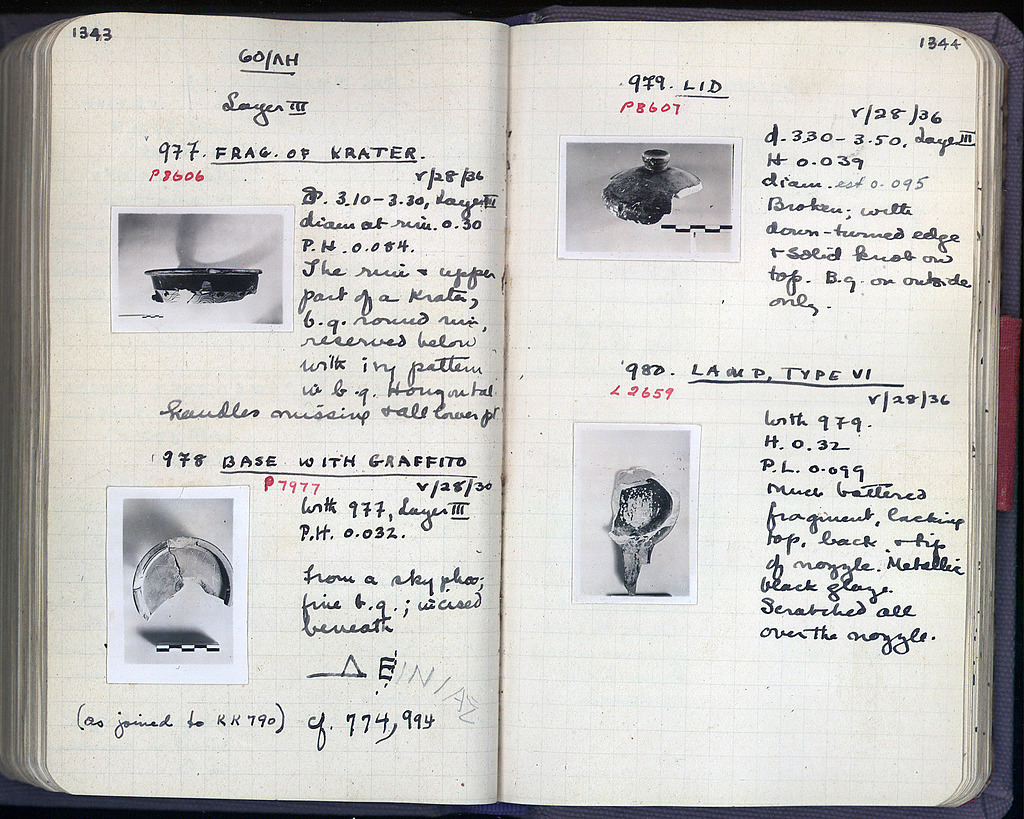 1343
60/ΛH
Layer III
977. FRAG. OF KRATER.
P8606
V/28/36
D. 3.10-3.30, Layer III
diam at rim. 0.30
P.H. 0.084.
The rim + upper
part of a krater,
b.g. round rim,
reserved below
with ivy pattern
in b.g. Horizontal
handles missing + all lower pt.
978 BASE WITH GRAFFITO
P7977
V/28/36
With 977, Layer III
P.H. 0.032.
From a skyphos;
fine b.g.; incised
beneath
ΔΕΙΝΙΑΣ
(as joined to KK790) cf. 774, 994
1344
979. LID
P8607
V/28/36
d. 3.30-3.50, Layer III
H 0.039
diam. est 0.095
Broken; with
down-turned edge
+ solid knob on
top. B.g. on outside
only.
980. LAMP, TYPE VI
L2659
V/28/36
With 979.
H. 0.32
P.L. 0.099
Much battered
fragment, lacking
top, back + tip
of nozzle. Metallic
black glaze.
Scratched all
over the nozzle.